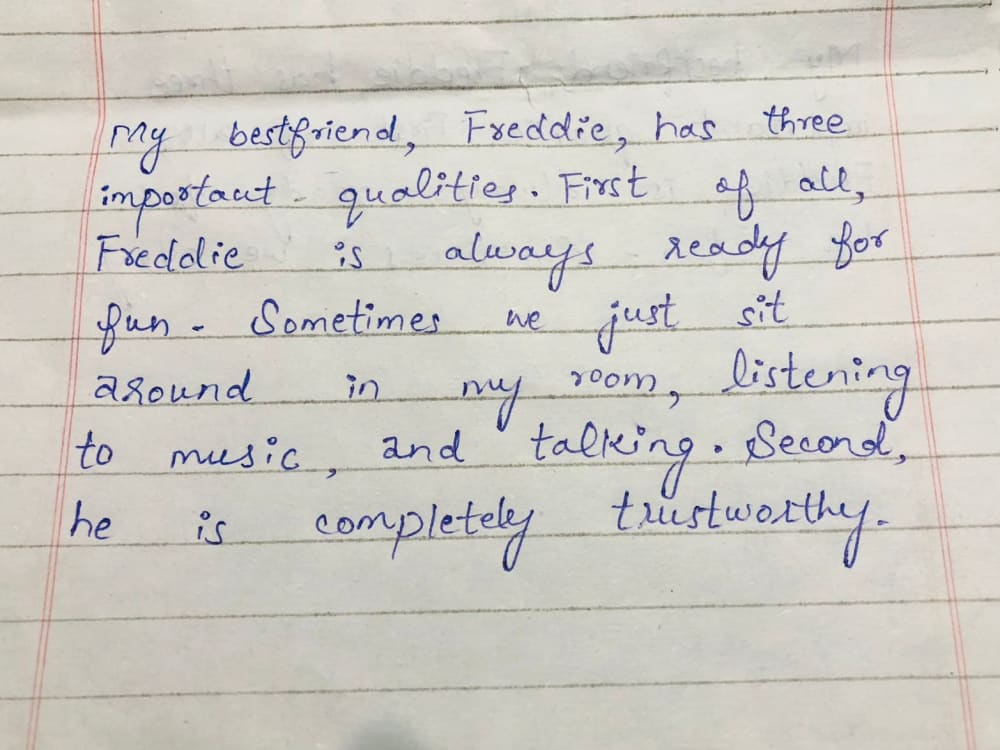 My bestfriend, Freddie, has three
important qualities. First of all,
Freddie is always ready for
fun. Sometimes we just sit
around in my room, listening
to music, and talking. Second,
he is completely trustworthy.